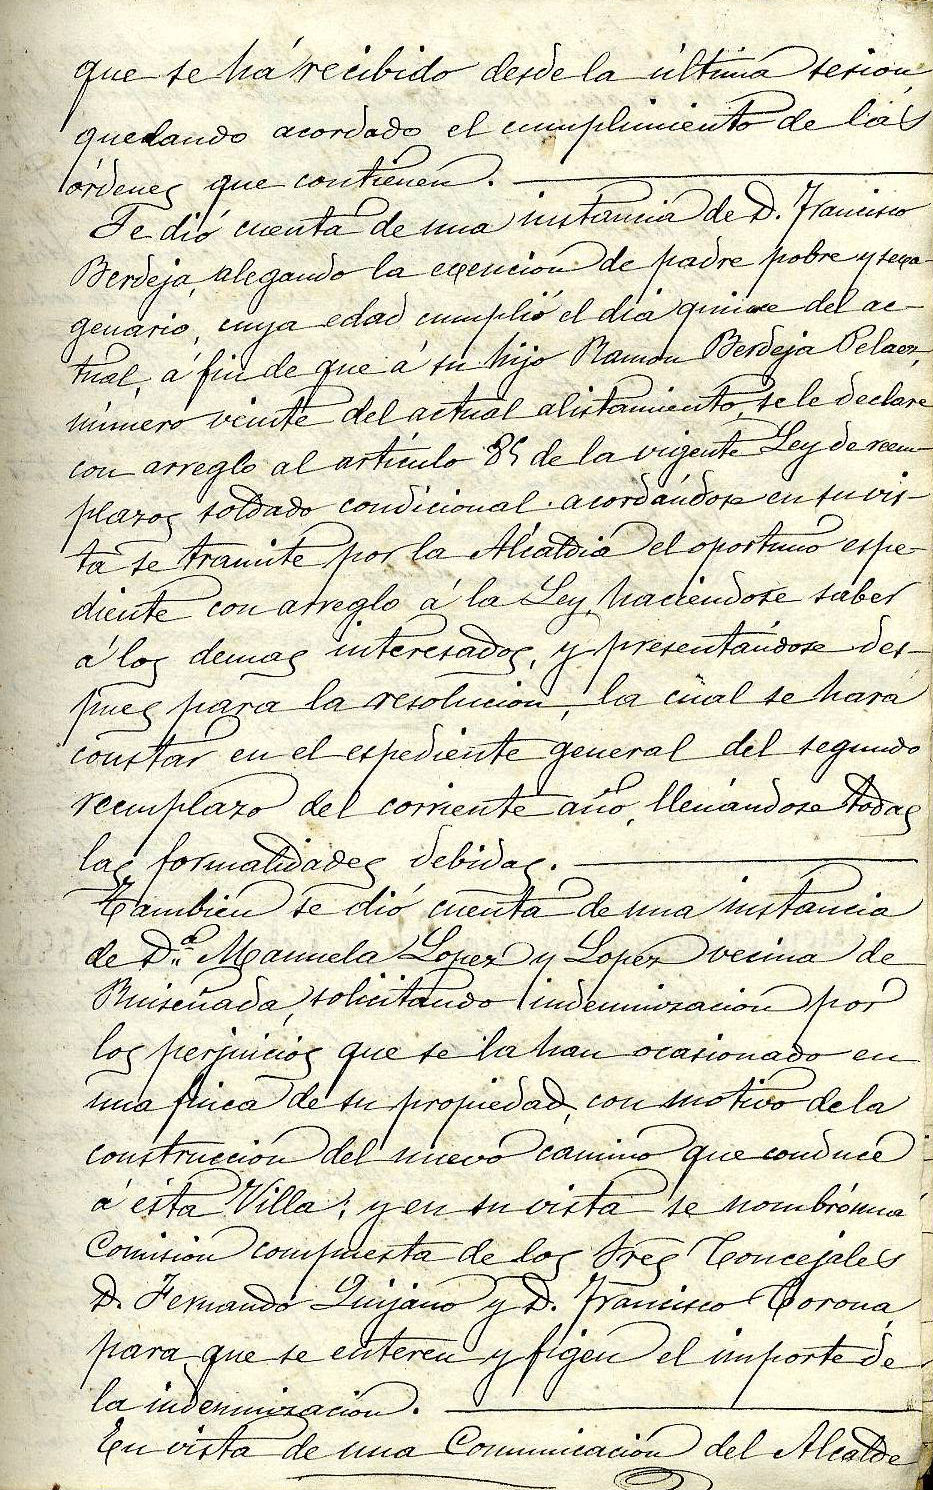 que se há recibido desde la última sesion
quedando acordado el cumplimiento de las
órdenes que contienen.
Se dió cuenta de una instancia de D. Francisco
Berdeja, alegando la exencion de padre pobre y sexa-
genario, cuya edad cumplió el dia quince del ac-
tual, á fin de que á su hijo Ramon Berdeja Pelaez,
número veinte del actual alistamiento, se le declare
con arreglo al artículo 85 de la vigente Ley de reem-
plazos soldado condicional. acordándose en su vis-
ta se tramite por la Alcaldia el oportuno espe-
diente con arreglo á la Ley, haciendose saber
á los demas interesados, y presentándose des-
pues para la resolucion, la cual se hara
constar en el espediente general del segundo
reemplazo del corriente año, llenándose todas
las formalidades debidas.
Tambien se dió cuenta de una instancia
de Dª Manuela Lopez y Lopez vecina de
Ruiseñada, solicitando indemnizacion por
los perjuicios que se la han ocasionado en
una finca de su propiedad, con motivo de la
construccion del nuevo camino que conduce
á ésta Villa; y en su vista se nombró una
Comision compuesta de los tres Concejales
D. Fernando Quijano y D. Francisco Corona,
para que se enteren y figen el importe de
la indemnizacion.
En vista de una Comunicación del Alcalde